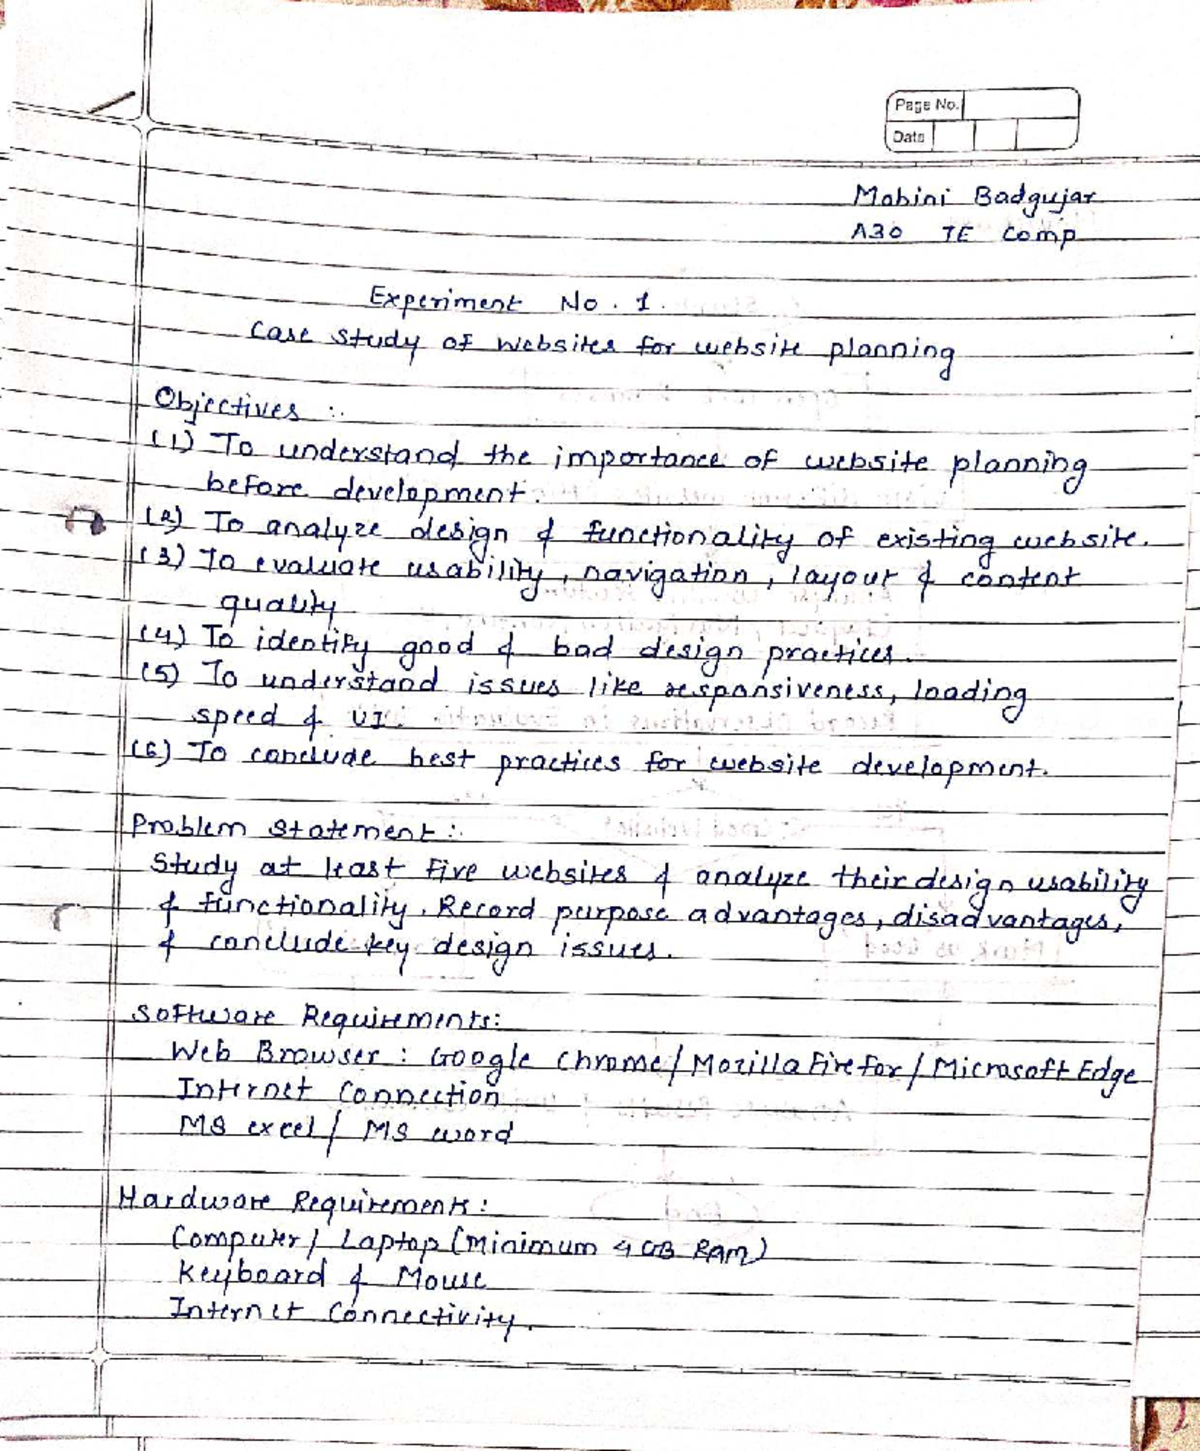 Page No.
Date
Mohini Badgujar
A30 TE Comp
Experiment No. 1.
Case study of websites for website planning
Objectives :.
(1) To understand the importance of website planning
before development.
(2) To analyze design & functionality of existing website.
(3) To evaluate usability, navigation, layout & content
quality
(4) To identify good & bad design practices.
(5) To understand issues like responsiveness, loading
speed & UI.
(6) To conclude best practices for website development.
Problem Statement :.
Study at least five websites & analyze their design usability
& functionality. Record purpose advantages, disadvantages,
& conclude key design issues.
Software Requirements:
Web Browser : Google Chrome/Mozilla Firefox/Microsoft Edge
Internet Connection
MS excel/ MS word
Hardware Requirements:
Computer/ Laptop (Minimum 4 GB RAM)
Keyboard & Mouse
Internet Connectivity.